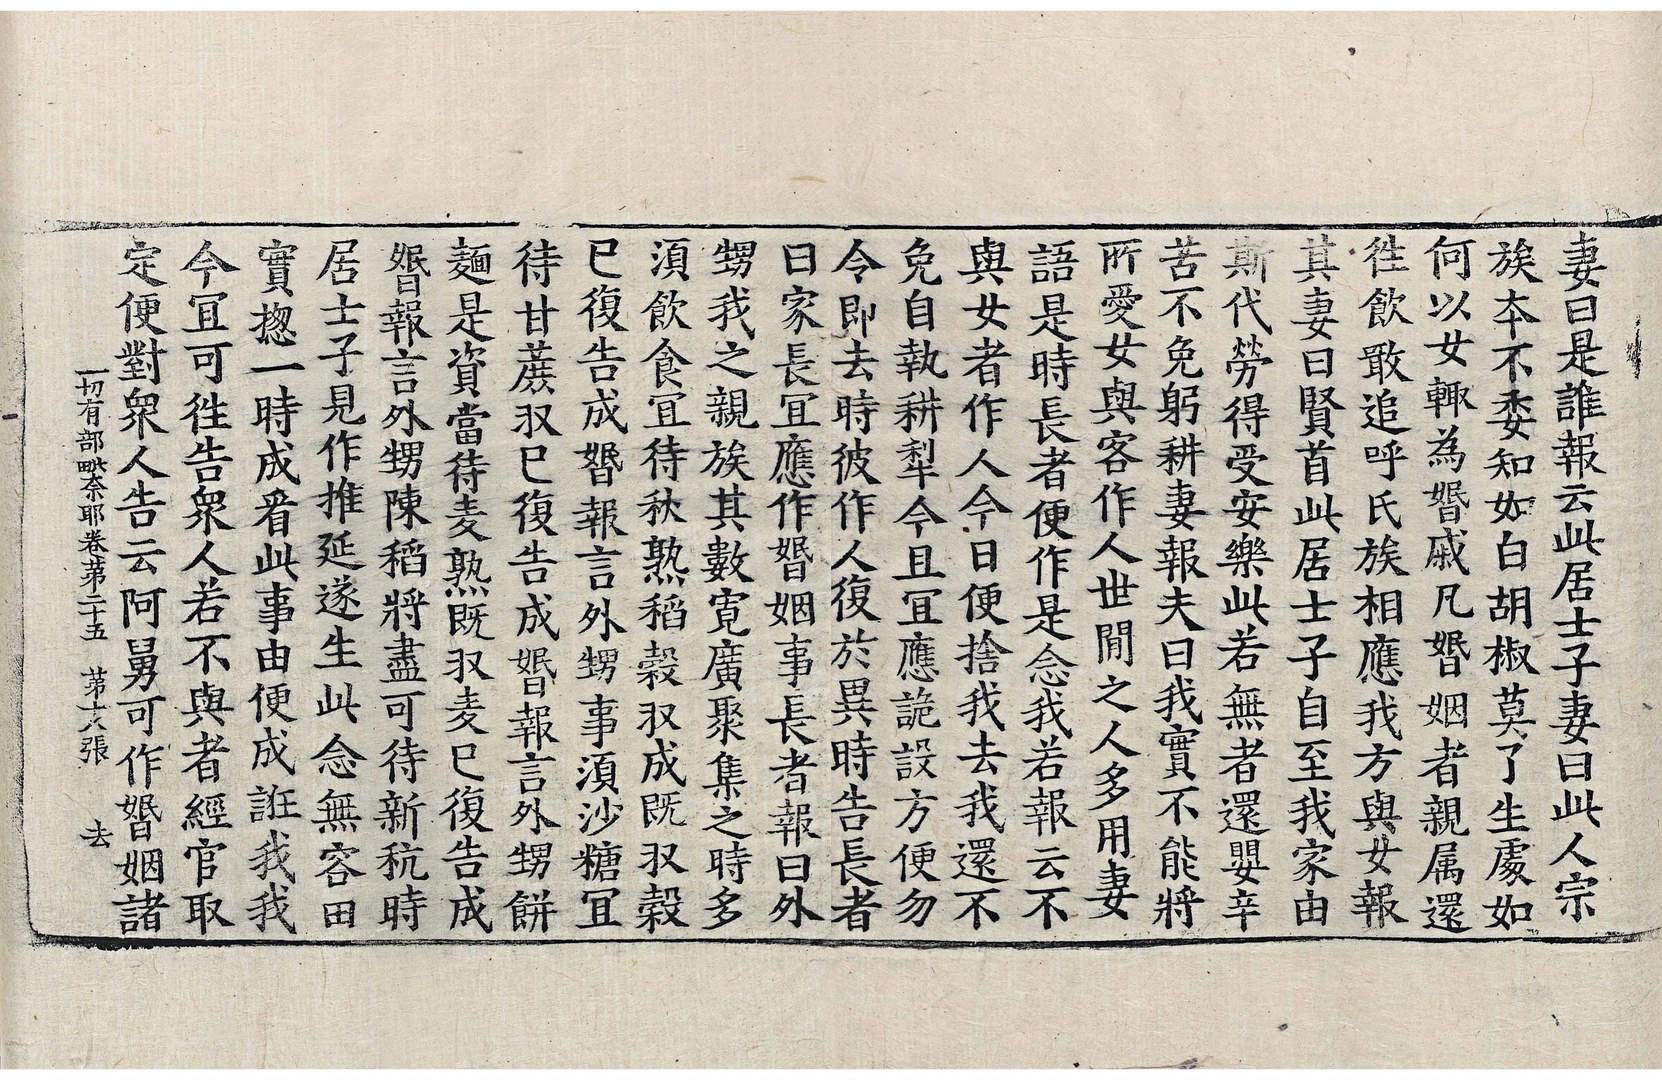 妻曰是誰報云此居士子妻曰此人宗
族夲不委知如白胡椒莫了生處如
何以女輙為婚戚凡婚姻者親属還
徃飲敢追呼氏族相應我方與女報
其妻曰賢首此居士子自至我家由
斯代勞得受安樂此若無者還嬰辛
苦不免躬耕妻報夫曰我實不能將
所愛女與客作人世間之人多用妻
語是時長者便作是念我若報云不
與女者作人今日便捨我去我還不
免自執耕犁今且冝應詭設方便勿
令即去時彼作人復於異時告長者
曰家長冝應作婚姻事長者報曰外
甥我之親族其數寬廣聚集之時多
湏飲食冝待秋熟稻穀収成既収穀
已復告成婚報言外甥事湏沙糖冝
待甘蔗収已復告成婚報言外甥餅
麺是資當待麦熟既収麦已復告成
婚報言外甥陳稻將盡可待新秔時
居士子見作推延遂生此念無容田
實揔一時成㸔此事由便成誑我我
今冝可徃告衆人若不與者經官取
定便對衆人告云阿舅可作婚姻諸
一切有部毗奈耶卷苐二十五　苐十六張　去